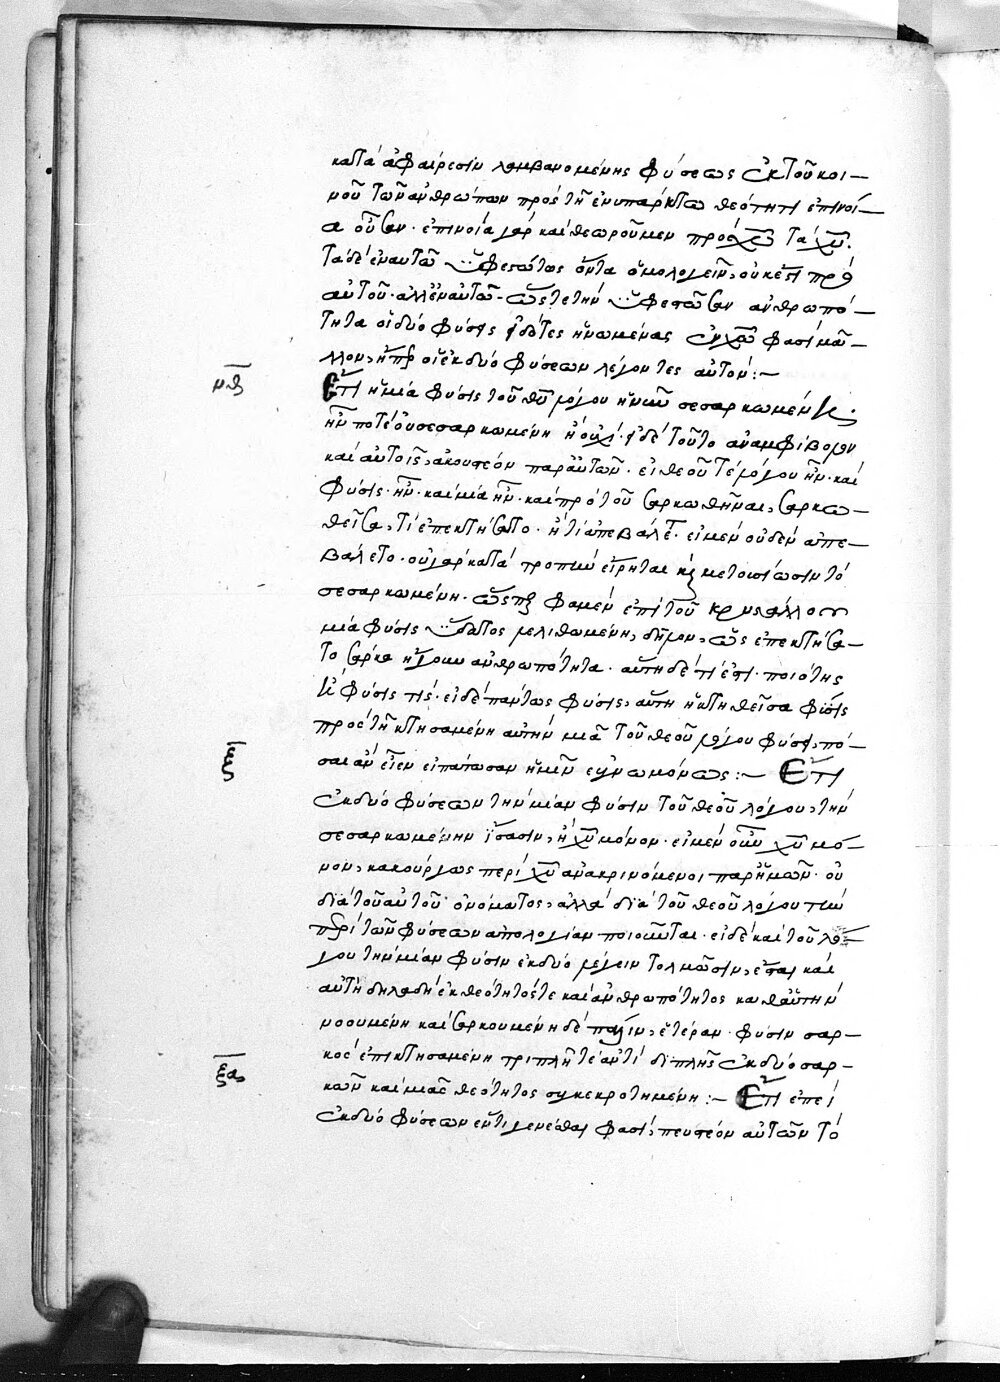 κατὰ ἀφαίρεσιν λαμβανομένης φύσεως ἐκ τοῦ κοι-
νοῦ τῶν ἀνθρώπων πρὸς τῆ ἐνυπάρκτω θεότητι ἐπινοί-
α οὖσαν· ἐπινοία γὰρ καὶ θεωροῦμεν
τὰ δὲ ἐν αὐτῶ ὑφεστῶτος ὄντα ὁμολογεῖν, οὐκέτι πρὸ
αὐτοῦ· ἀλλ' ἐν αὐτῶ· ὥστε τὴν ὑφεστῶσαν ἀνθρωπό-
τητα οἱ δύο φύσεις εἰδότες ἡνωμένας ἐν χω φασὶ μᾶλ-
λον, ἤπερ οἱ ἐκ δύο φύσεων λέγοντες αὐτόν:~
νθ
Ἔτι ἡ μία φύσις τοῦ θυ λόγου ἡ νῦν σεσαρκωμένη
ἦν ποτὲ οὐ σεσαρκωμένη ἢ οὐχί· εἰ δὲ τοῦτο ἀναμφίβολον
καὶ αὐτοῖς, ἀκουστέον παρ' αὐτῶν· εἰ θεοῦ τε λόγου ἦν· καὶ
φύσις ἦν· καὶ μία ἦν· καὶ πρὸ τοῦ σαρκωθῆναι, σαρκω-
θεῖσα, τί ἐπεκτήσατο· ἢ τί ἀπεβάλετο· εἰ μὲν οὐδὲν ἀπε-
βάλετο· οὐ γὰρ κατὰ τροπὴν εἴρηται καὶ μετουσίωσιν τὸ
σεσαρκωμένη· ὥσπερ φαμὲν ἐπὶ τοῦ κρυστάλλου
μία φύσις ὕδατος λελιθωμένη, δῆλον, ὡς ἐπεκτήσα-
το σάρκα ἤγουν ἀνθρωπότητα· αὕτη δὲ τί ἐστι· ποιότης
ἢ φύσις τίς· εἰ δὲ πάντως φύσις, αὕτη ἡ κτηθεῖσα φύσις
πρὸς τῆ κτησαμένη αὐτὴν μιᾶ τοῦ θεοῦ λόγου φύσει, πό-
σαι ἂν εἶεν εἰπάτωσαν ἡμῖν εὐγνωμόνως:~ Ἔτι
ξ
ἐκ δύο φύσεων τὴν μίαν φύσιν τοῦ θεοῦ λόγου, τὴν
σεσαρκωμένην ἴσασιν, ἢ χν μόνον· εἰ μὲν οὖν χν μό-
νον, κακούργως περὶ χυ ἀνακρινόμενοι παρ' ἡμῶν· οὐ
διὰ τοῦ αὐτοῦ ὀνόματος, ἀλλὰ διὰ τοῦ θεοῦ λόγου τὴν
περὶ τῶν φύσεων ἀπολογίαν ποιοῦνται· εἰ δὲ καὶ τοῦ λό-
γου τὴν μίαν φύσιν ἐκ δύο λέγειν τολμῶσιν, ἔσται καὶ
αὐτὴ δηλαδὴ ἐκ θεότητός τε καὶ ἀνθρωπότητος καθ' αὑτὴν
νοουμένη καὶ σαρκουμένη δὲ πάλιν, ἑτέραν φύσιν σαρ-
κὸς ἐπικτησαμένη τριπλῆ τε ἀντὶ διπλῆς ἐκ δύο σαρ-
κῶν καὶ μιᾶς θεότητος συγκεκροτημένη:~ Ἔτι ἐπεὶ
ξα
ἐκ δύο φύσεων ἕν τι γενέσθαι φασί, πευστέον αὐτῶν τὸ